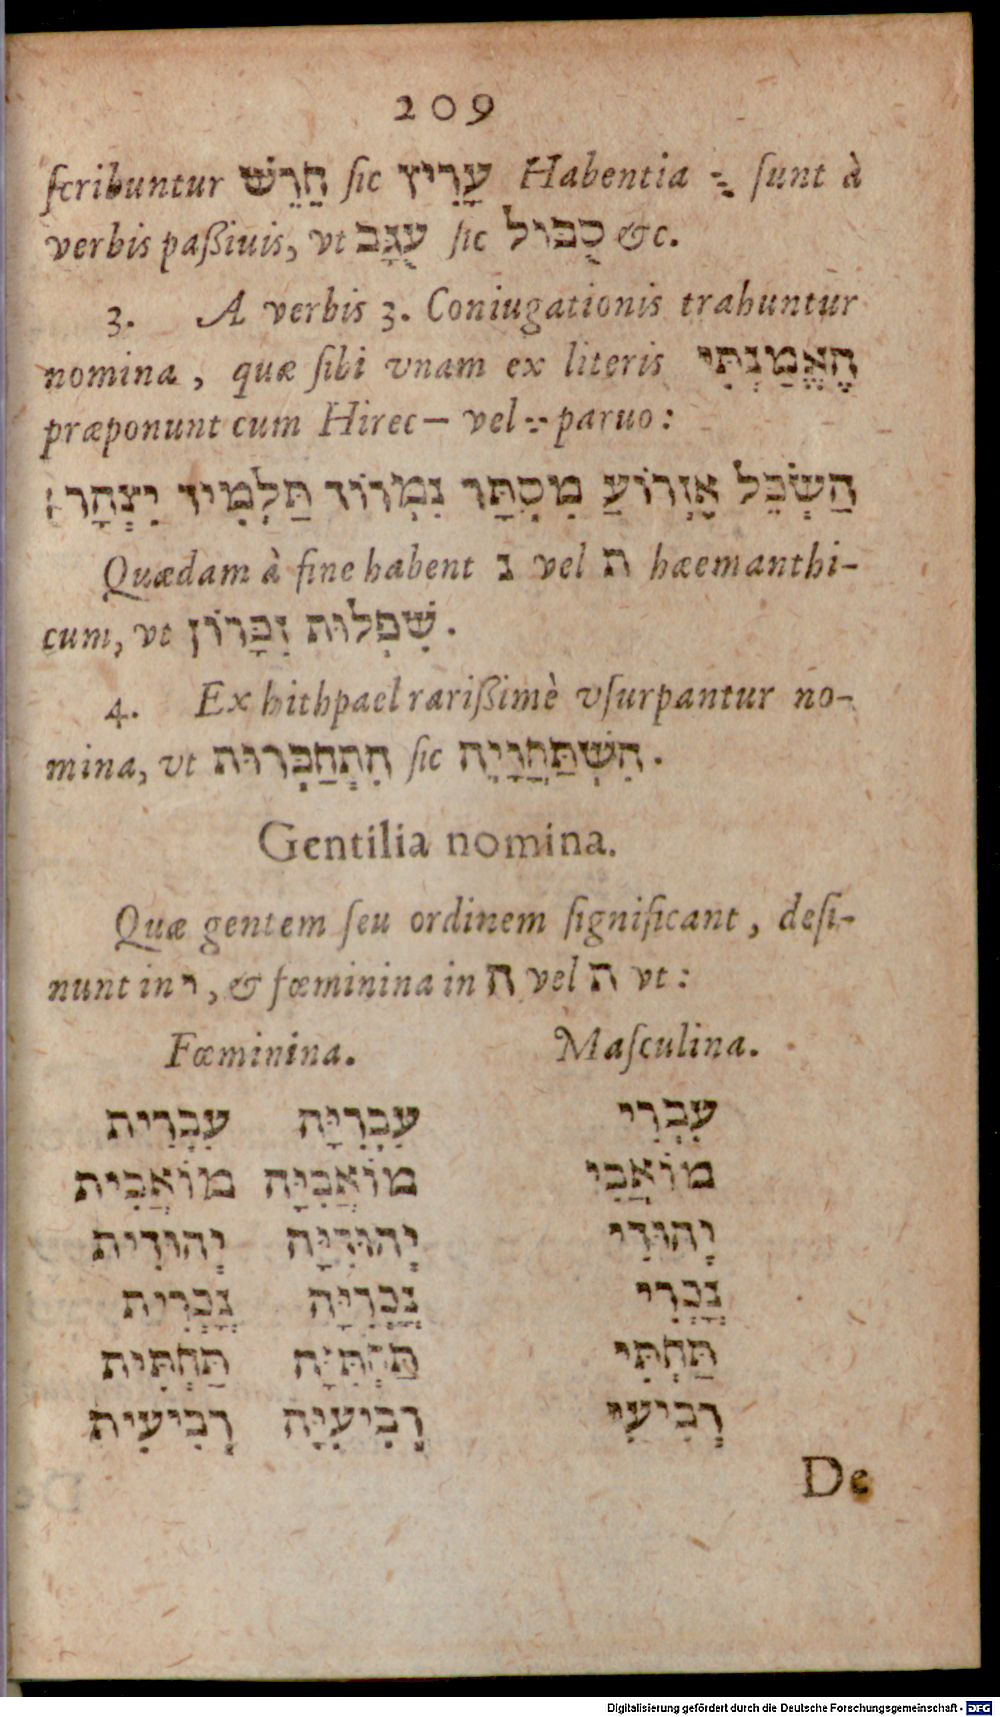 209
ſcribuntur חֵרֵשׁ ſic עָרִיץ Habentia ֻ ſunt à
verbis paßiuis, vt עֻגָב ſic סֻבּוּל &c.
3. A verbis 3. Coniugationis trahuntur
nomina, quæ ſibi vnam ex literis הֶאֱמַנְתִּי
præponunt cum Hirec – vel paruo:
הַשְׂכֵּל אֶזְרוֹעַ מִסְתָּר נִמְרוֹד תַּלְמִיד יִצְהָר:
Quædam à fine habent נ vel ת hæemanthi-
cum, vt זִכָּרוֹן שִׁפְלוּת.
4. Ex hithpael rarißimè vſurpantur no-
mina, vt הִתְחַבְּרוּת ſic הִשְׁתַּחֲוָיָה.
Gentilia nomina.
Quæ gentem ſeu ordinem ſignificant, deſi-
nunt in י, & fœminina in ה vel ת vt:
Fœminina. Maſculina.
עִבְרִי עִבְרִיָּה עִבְרִית
מוֹאֲבִי מוֹאֲבִיָּה מוֹאֲבִית
יְהוּדִי יְהוּדִיָּה יְהוּדִית
נָכְרִי נָכְרִיָּה נָכְרִית
תַּחְתִּי תַּחְתִּיָּה תַּחְתִּית
רְבִיעִי רְבִיעִיָּה רְבִיעִית
De
Digitalisierung gefördert durch die Deutsche Forschungsgemeinschaft - DFG